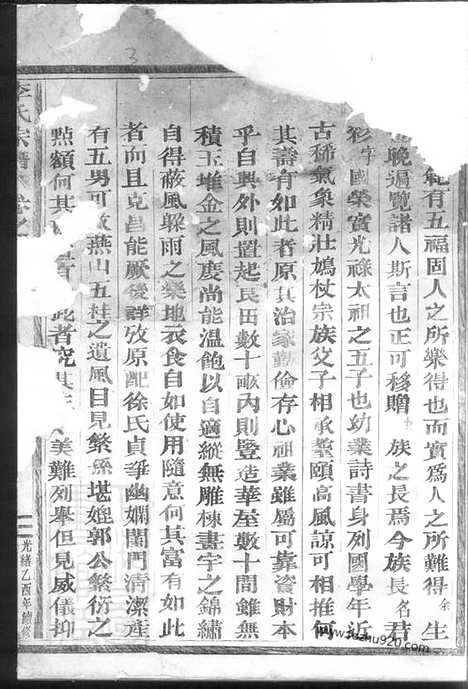 能有五福固人之所樂得也而實爲人之所難得余生
晚遍覽諸人斯言也正可移贈 族之長爲今族長名君
彩字國榮實光祿太祖之五子也幼業詩書身列國學年近
古稀氣象精壯鳩杖宗族父子相承耄頤高風諒可相推何
其壽有如此者原其治家勤儉存心祖業雖屬可靠資財本
乎自興外則置起良田數十畝內則豎造華屋數十間雖無
積玉堆金之風度尚能溫飽以自適縱無雕棟畫宇之錦繡
自得蔽風躲雨之樂地衣食自如使用隨意何其富有如此
者而且克昌能厥後詳攷原配徐氏貞爭幽嫻閫門清潔產
有五男可 燕山五桂之遺風目見繁 堪媲郭公繁衍之
點額何其 者 此者究其 美難列舉但見威儀抑
氏宗譜
光緒乙酉年續修
www.shu920.com
3